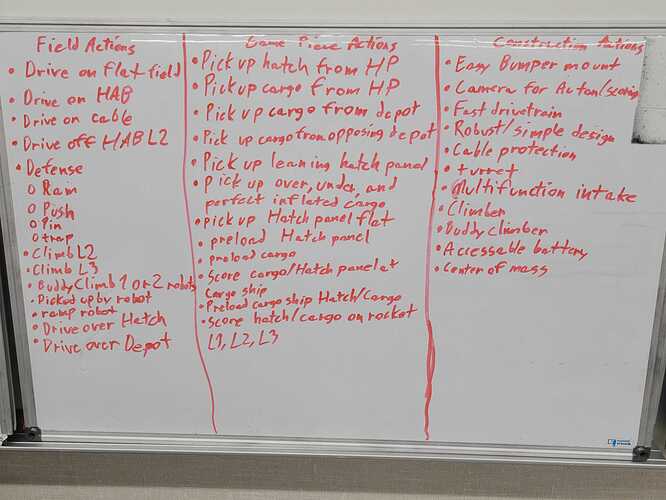 Field Actions
• Drive on flat field
• Drive on HAB
• Drive on cable
• Drive off HAB L2
• Defense
o Ram
o Push
o Pin
o trap
• Climb L2
• Climb L3
• Buddy Climb 1 or 2 robots
• Picked up by robot
• ramp robot
• Drive over Hatch
• Drive over Depot
Game Piece Actions
• Pick up hatch from HP
• Pick up cargo from HP
• Pick up cargo from depot
• Pick up cargo from opposing depot
• Pick up leaning hatch panel
• Pick up over, under, and
perfect inflated cargo
• Pick up Hatch panel flat
• preload Hatch panel
• preload cargo
• Score cargo/Hatch panel at
Cargo ship
• Preload cargo ship Hatch/Cargo
• Score hatch/cargo on rocket
L1, L2, L3
Construction Actions
• Easy Bumper mount
• Camera for Auton/scoring
• Fast drivetrain
• Robust/simple design
• Cable protection
• turret
• Multifunction intake
• Climber
• Buddy climber
• Accessable battery
• Center of mass